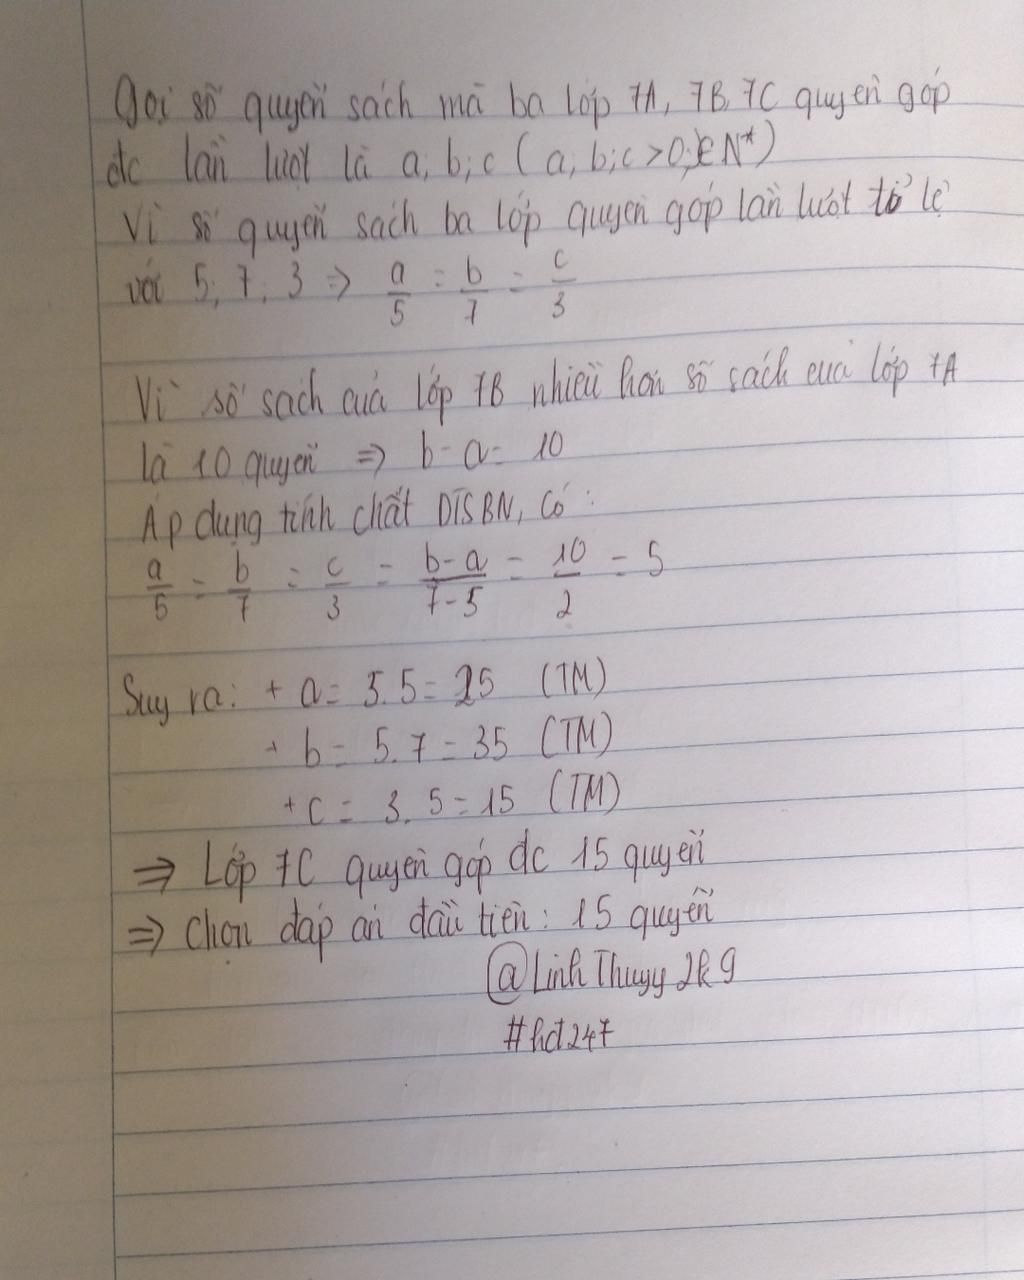 Gọi số quyển sách mà ba lớp 7A, 7B, 7C quyên góp
đc lần lượt là a, b; c (a, b; c > 0; ∈ N*)
Vì số quyển sách ba lớp quyên góp lần lượt tỉ lệ
với 5; 7; 3 => a/5 = b/7 = c/3
Vì số sách của lớp 7B nhiều hơn số sách của lớp 7A
là 10 quyển => b - a = 10
Áp dụng tính chất DTSBN, có:
a/5 = b/7 = c/3 = b-a/7-5 = 10/2 = 5
Suy ra: + a = 5.5 = 25 (TM)
+ b = 5.7 = 35 (TM)
+ c = 3.5 = 15 (TM)
=> Lớp 7C quyên góp đc 15 quyển
=> Chọn đáp án đầu tiên: 15 quyển
@Linh Thuyy 2k9
#hd247